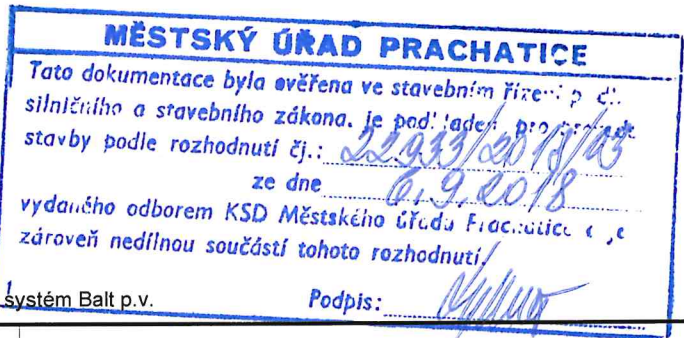 MĚSTSKÝ ÚŘAD PRACHATICE
Tato dokumentace byla ověřena ve stavebním řízení
silničního a stavebního zákona, je podkladem pro
stavby podle rozhodnutí čj.: 22933/2018/
ze dne 6.9.2018
vydaného odborem KSD Městského úřadu Prachatice a je
zároveň nedílnou součástí tohoto rozhodnutí.
systém Balt p.v.
Podpis: